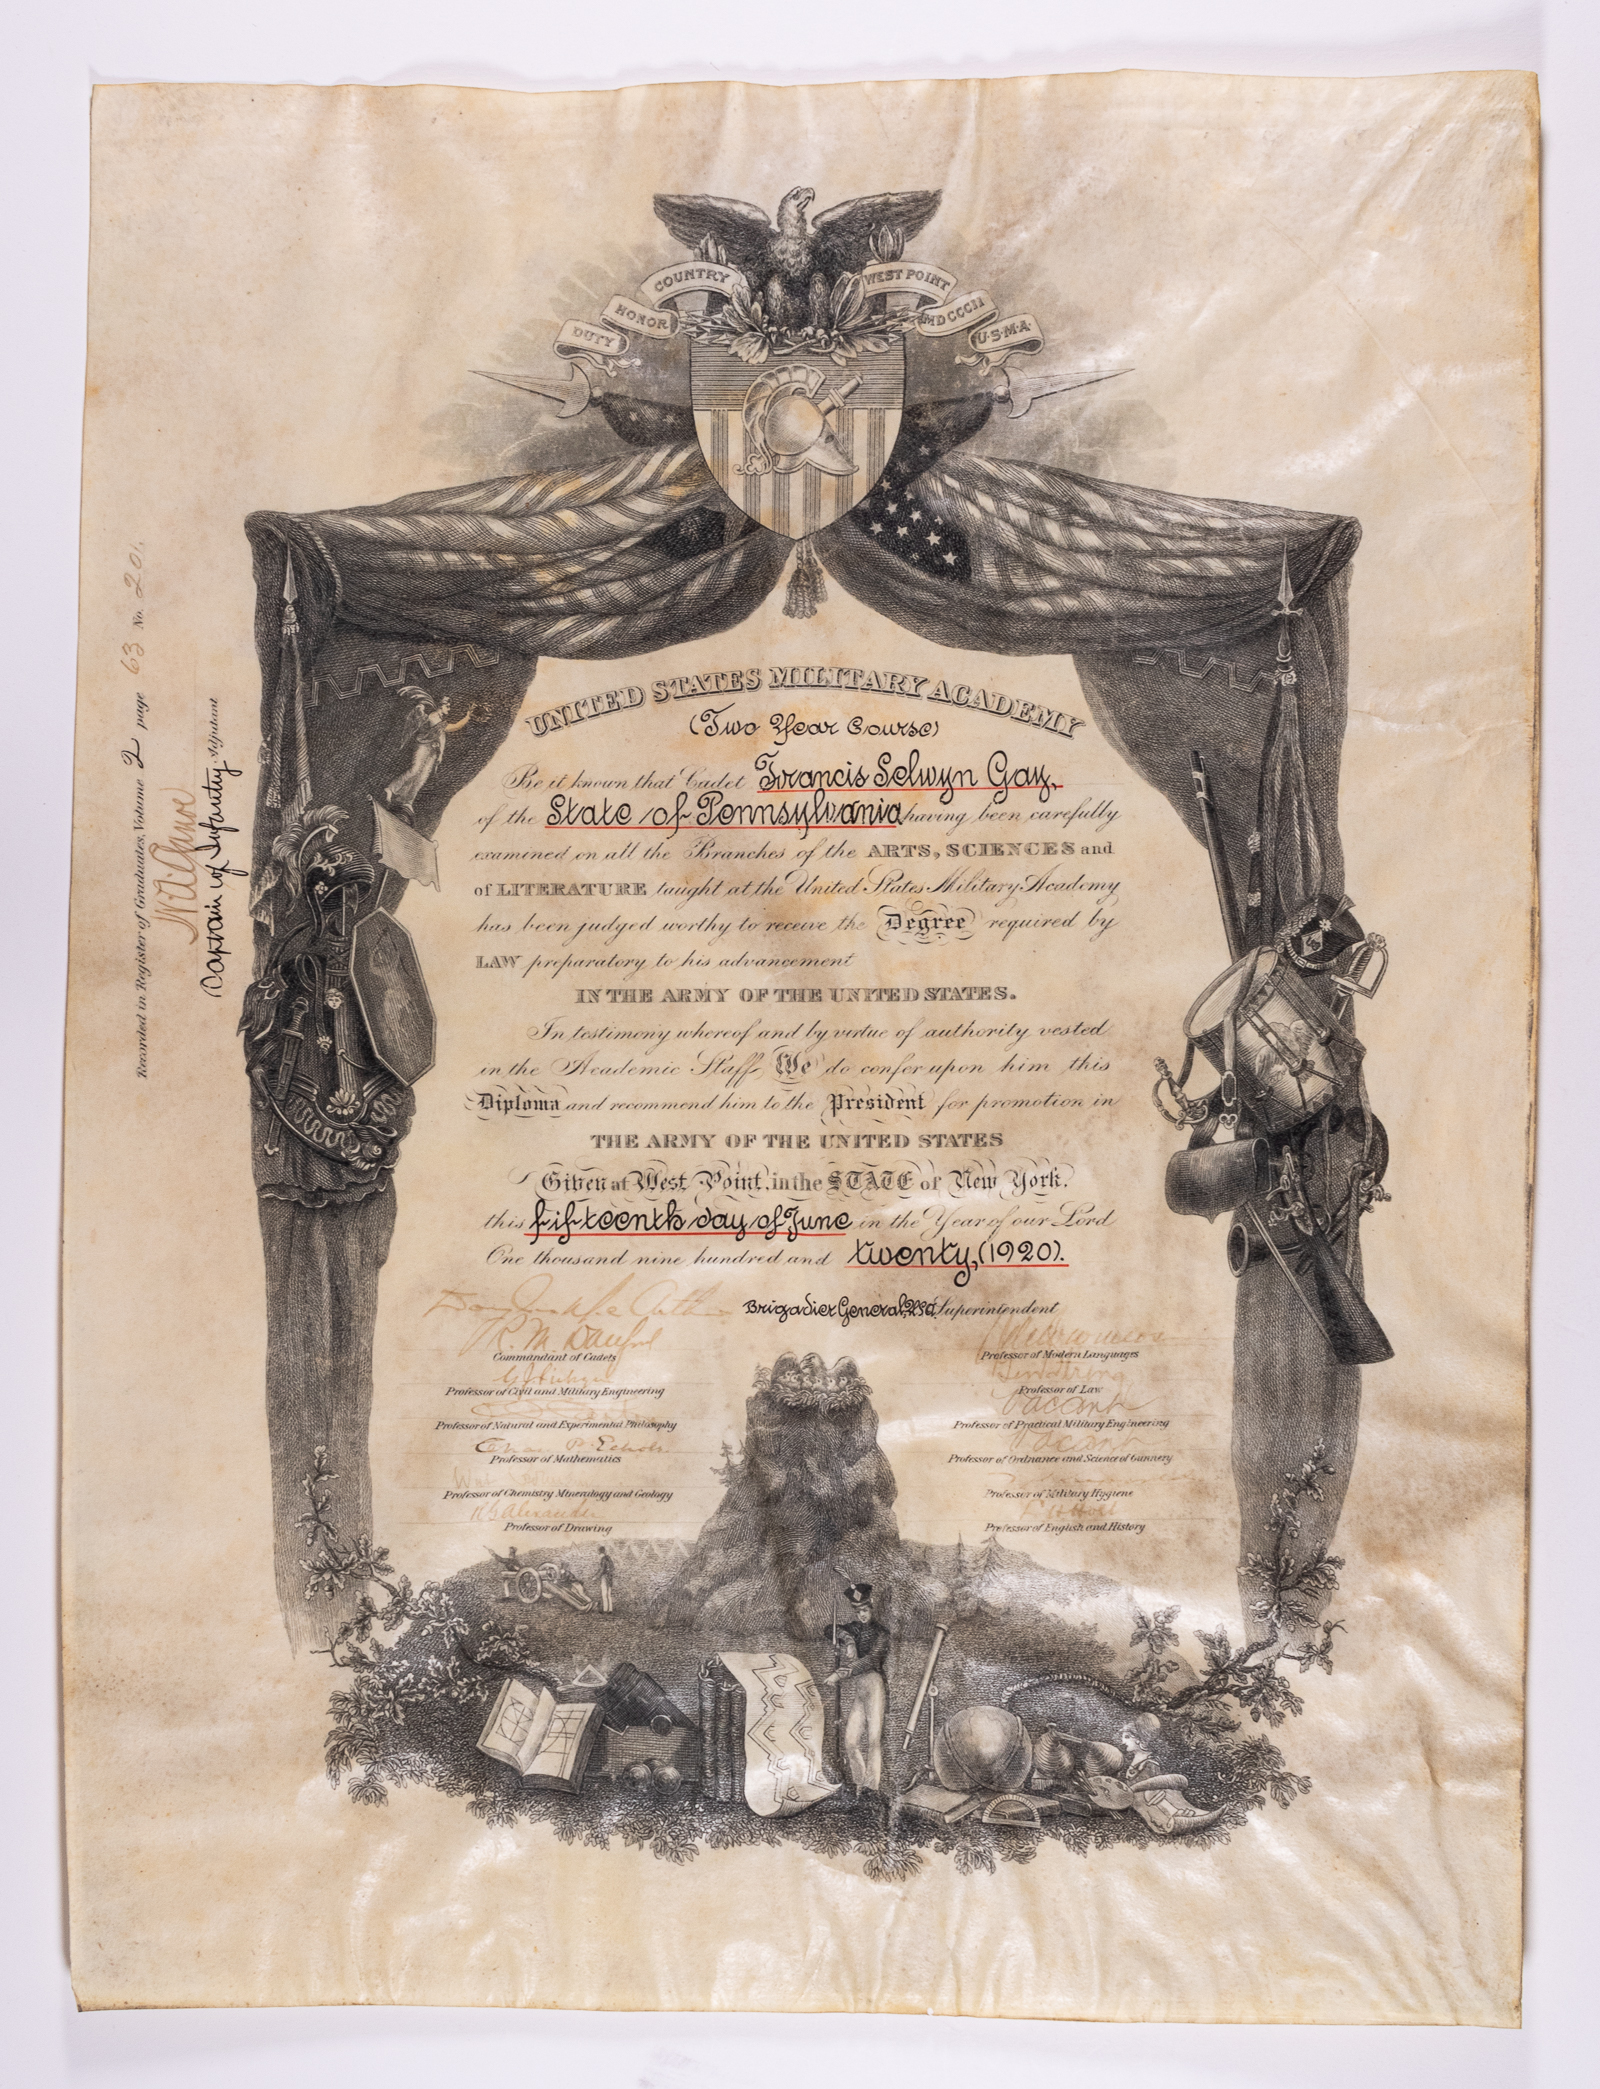 COUNTRY
HONOR
DUTY
WEST POINT
MDCCCII
U·S·M·A·
UNITED STATES MILITARY ACADEMY
(Two Year Course)
Be it known that Cadet Francis Selwyn Gay,
of the State of Pennsylvania having been carefully
examined on all the Branches of the ARTS, SCIENCES and
of LITERATURE taught at the United States Military Academy
has been judged worthy to receive the Degree required by
LAW preparatory to his advancement
IN THE ARMY OF THE UNITED STATES.
In testimony whereof and by virtue of authority vested
in the Academic Staff, We do confer upon him this
Diploma and recommend him to the President for promotion in
THE ARMY OF THE UNITED STATES
Given at West Point, in the STATE of New York,
this fifteenth day of June in the Year of our Lord
One thousand nine hundred and twenty, (1920).
Brigadier General, Superintendent
R. M. Danford
Commandant of Cadets
Professor of Civil and Military Engineering
Professor of Natural and Experimental Philosophy
Chas P. Echols
Professor of Mathematics
Professor of Chemistry Mineralogy and Geology
Professor of Drawing
Professor of Modern Languages
Professor of Law
Vacant
Professor of Practical Military Engineering
Vacant
Professor of Ordnance and Science of Gunnery
Professor of Military Hygiene
Professor of English and History
Recorded in Register of Graduates, Volume 2 page 63 No. 201.
Captain of Infantry Adjutant